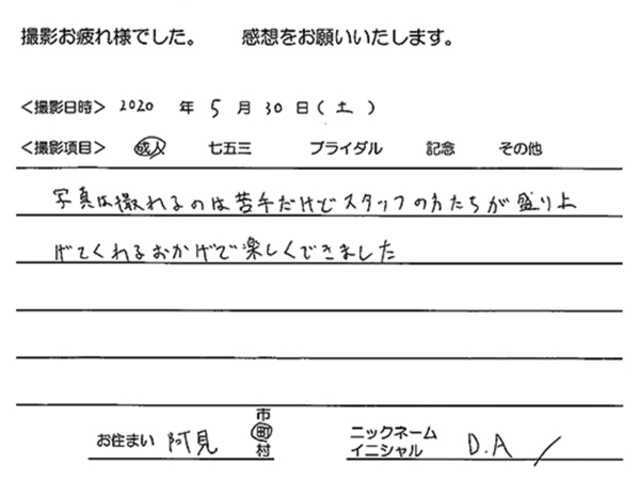 撮影お疲れ様でした。　感想をお願いいたします。
＜撮影日時＞ 2020 年 5 月 30 日(土)
＜撮影項目＞ 成人 七五三 ブライダル 記念 その他
写真は撮れるのは苦手だけどスタッフの方たちが盛り上
げてくれるおかげで楽しくできました
お住まい 阿見 市 町 村
ニックネーム
イニシャル D.A